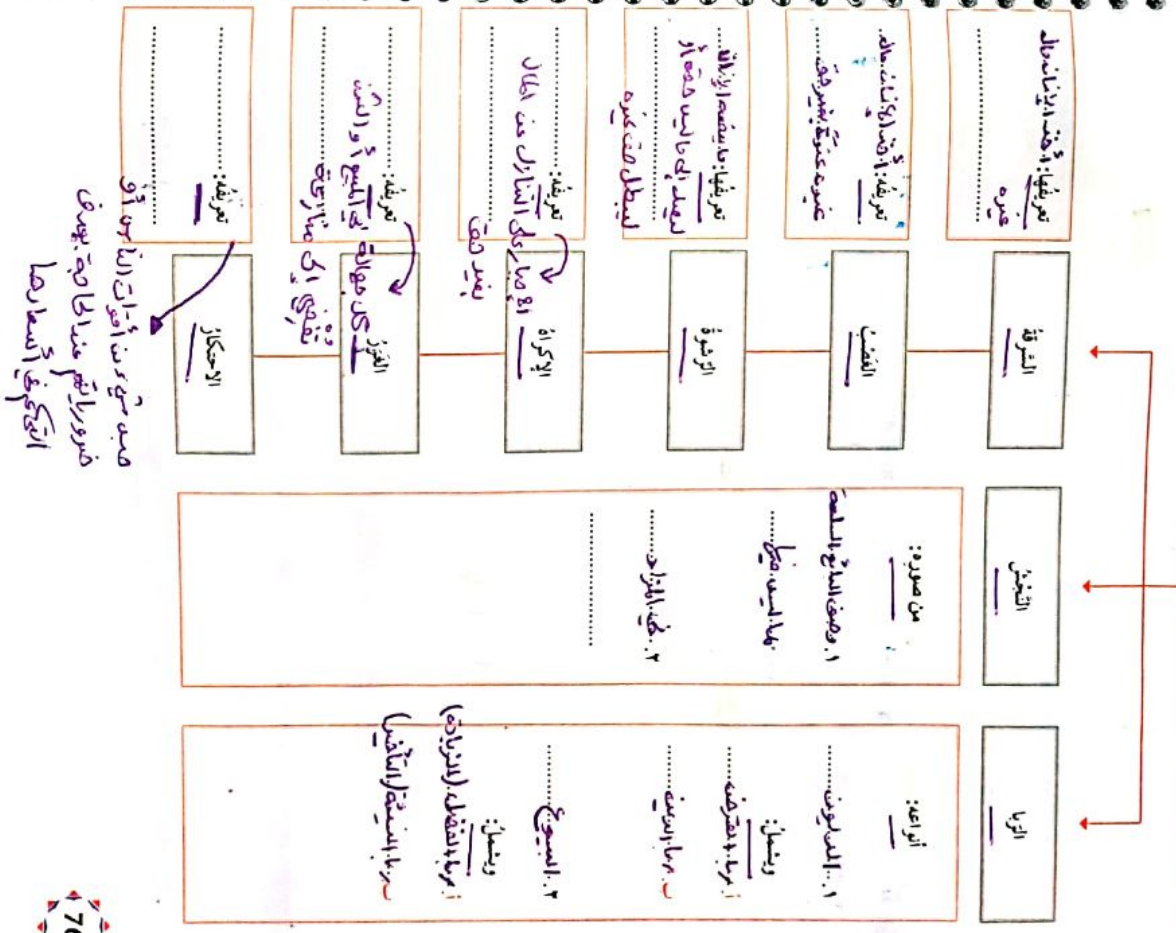 السَّرقَةُ
تعريفُها: أخذ الإنسان مال
غيره
الغَصْبُ
تعريفُه: أخذ الإنسان مال
غيره عنوة بغير حق
الرّشوةُ
تعريفُها: ما يعطيه الإنسان
ليصل إلى ما ليس حقه أو
ليبطل حق غيره
الإكراهُ
تعريفُه:
الإجبار على التنازل عن المال
بغير حق
الغَرَرُ
تعريفُه:
كل جهالة في المبيع أو الثمن
تفضي إلى منازعة
الاحتكارُ
تعريفُه:
حبس شيء من أقوات الناس أو
ضرورياتهم عند الحاجة بهدف
التحكم في أسعارها
النَّجْشُ
من صوره:
١. وصف البائع السلعة
بما ليس فيها
٢. في المزاد
الرّبا
أنواعه:
١. الديون
ويشملُ:
أ. ربا القرض
ب. ربا الدين
٢. البيوع
ويشملُ:
أ. ربا الفضل (الزيادة)
ب. ربا النسيئة (التأخير)